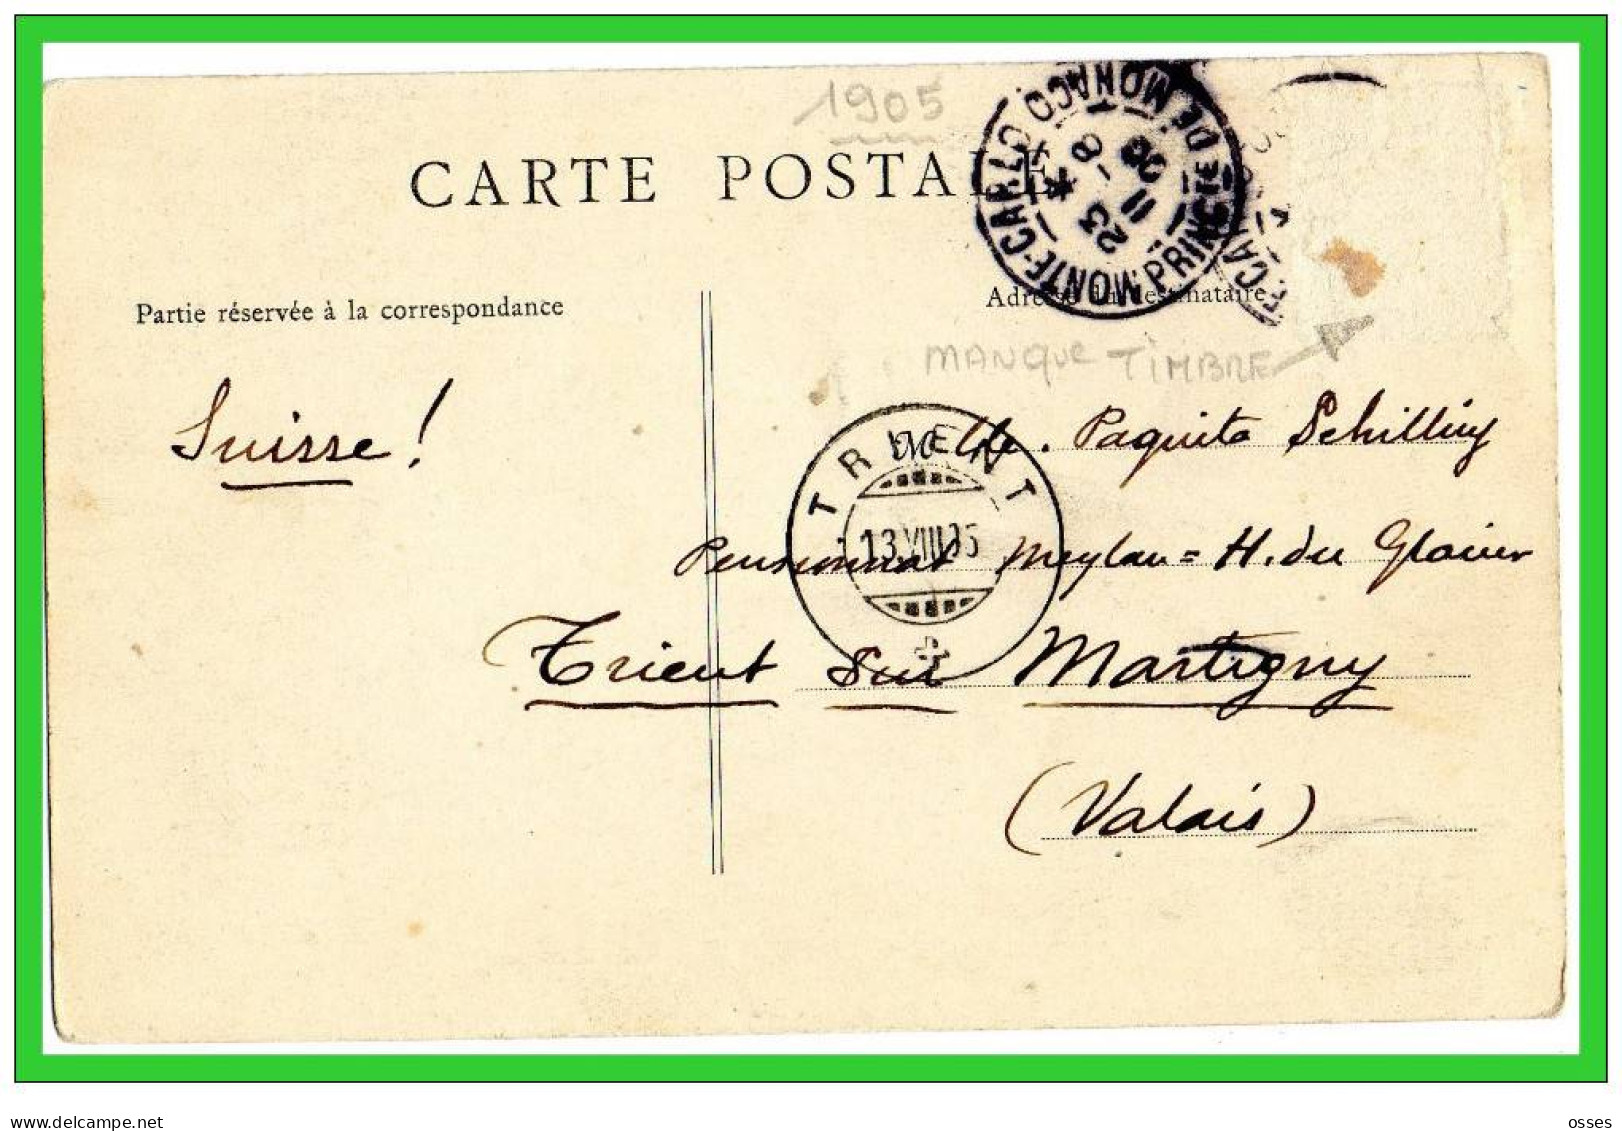 1905
CARTE POSTALE
MONTE-CARLO PRINCTE DE MONACO
23
11 -8
05
Partie réservée à la correspondance
Adresse du destinataire
MANQUE TIMBRE
Suisse!
Mlle. Paquita Schilling
TRIENT
13.VIII.05
Pensionnat Meylan = H. du Glacier
Trient sur Martigny
(Valais)
www.delcampe.net
osses